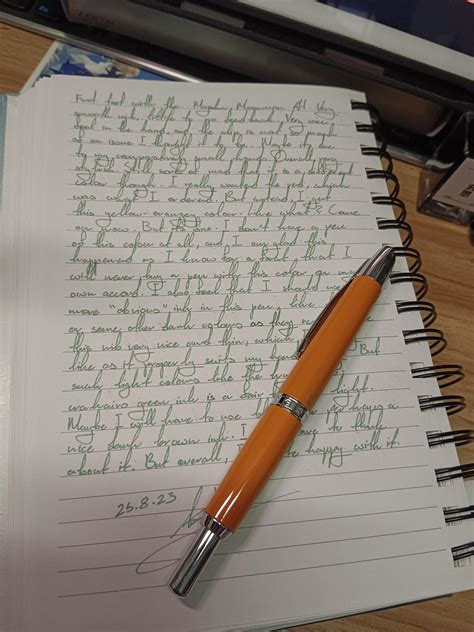 First test with the Majohn, Moonman A1. Very
smooth nib, little to no feedback. Very nice
feel in the hand, and the clip is not so
of an issue I thought it to be. Maybe it's due
to my comparatively small hands. Overall very
Still, sort of mad that it is a different
colour though. I really wanted the red, which
was what I ordered. But instead, I got
this yellow-orangey colour. Like what? Come
on now. But fine. I don't have a pen
of this colour at all, and I am glad this
happened as I know for a fact that I
will never buy a pen with this colour on my
own accord. I also feel that I should use
more "obvious" ink in this pen, like
or some other dark colours as they
this nib very nice and thin, which I
like as it properly suits my
But
such light colours like the
green ink is a
Maybe I will have to use
a
nice dark brown ink. I have to think
about it. But overall, happy with it.
25.8.23